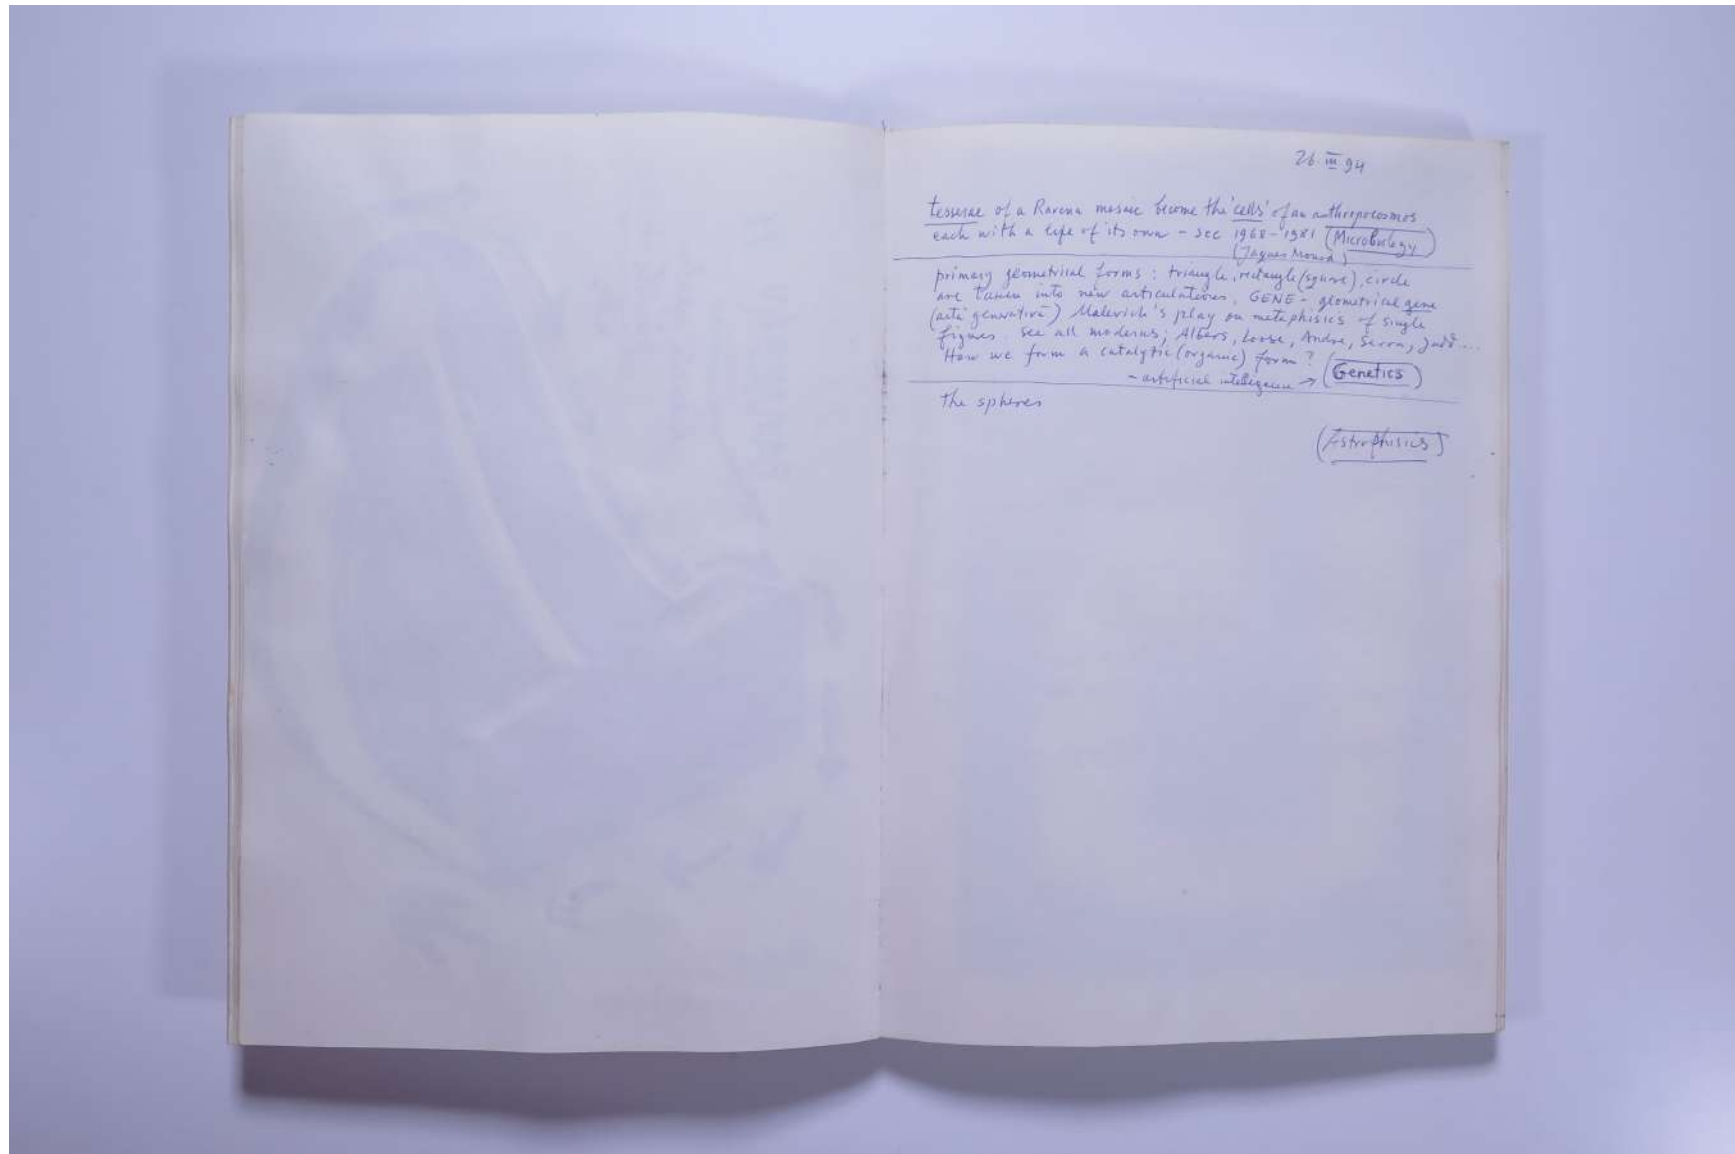 26 III 94
tesserae of a Ravena mosaic become the 'cells' of an anthropocosmos
each with a life of its own - see 1968-1981 (Microbiology)
(Jaques Monod)
primary geometrical forms : triangle, rectangle (square), circle
are taken into new articulations, GENE - geometrical gene
(arta generativă) Malevich's play on metaphisics of single
figures. see all moderns; Albers, Loose, Andre, Serra, Judd...
How we form a catalytic (organic) form ?
- artificial intelligence → (Genetics)
the spheres
(Astrophisics)